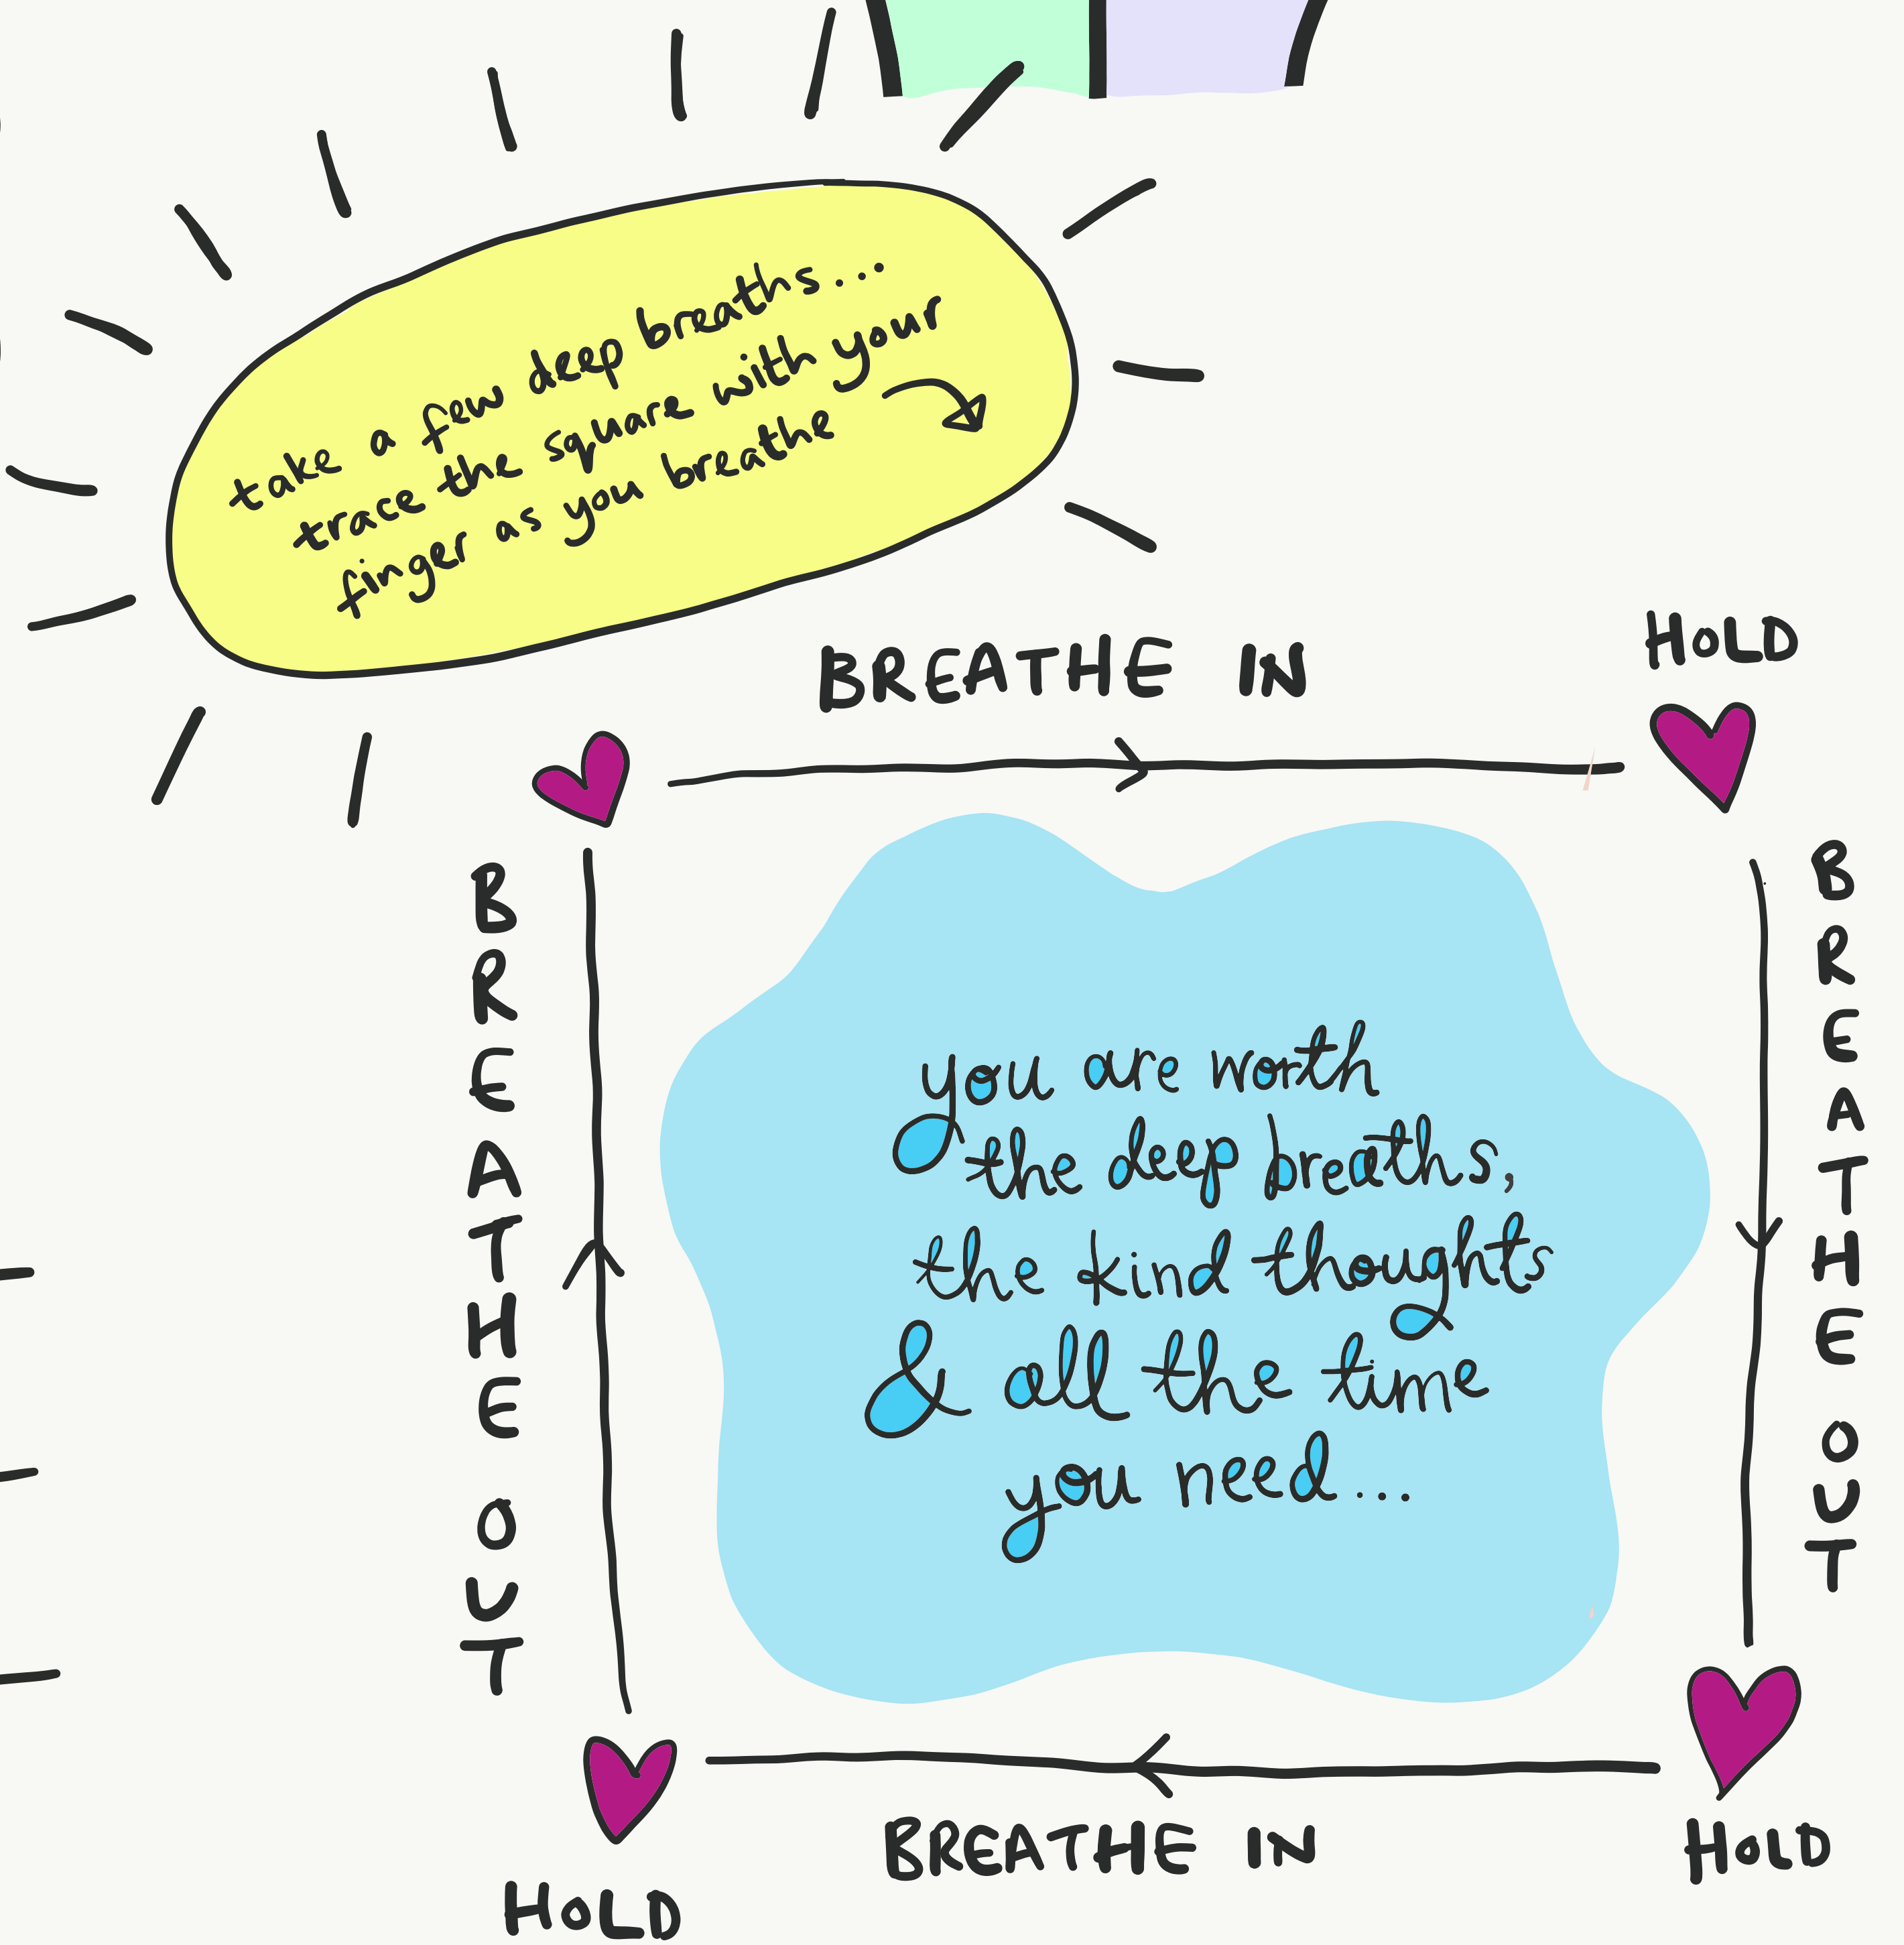 take a few deep breaths...
trace the square with your
finger as you breathe
BREATHE IN
HOLD
BREATHE OUT
BREATHE OUT
you are worth
the deep breaths,
the kind thoughts
& all the time
you need...
BREATHE IN
HOLD
HOLD